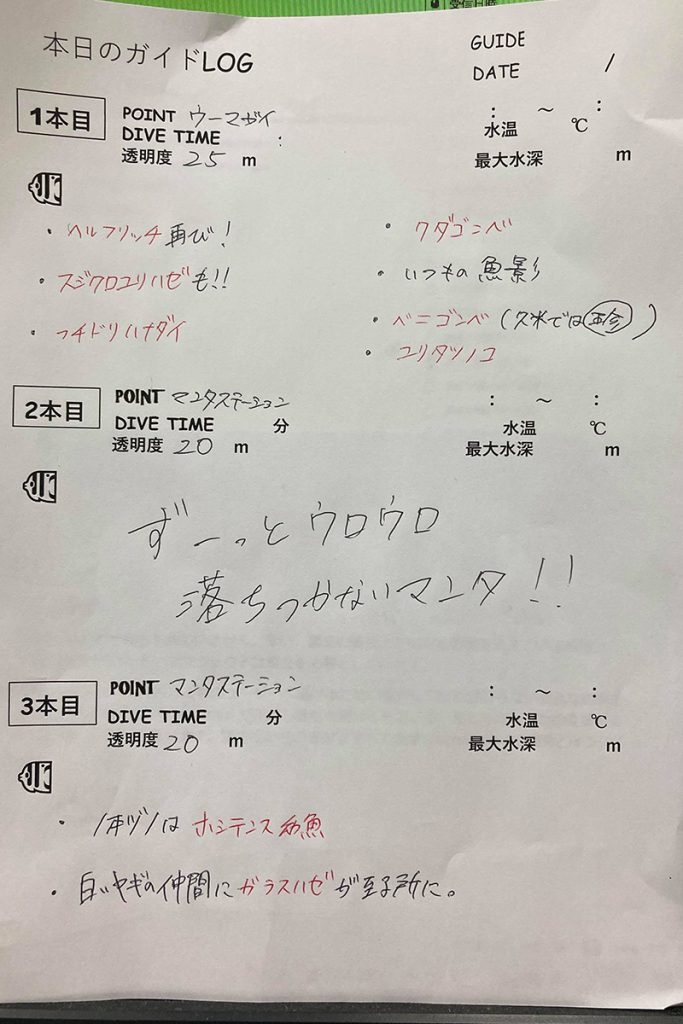 受信日時
本日のガイドLOG
GUIDE
DATE /
1本目
POINT ウーマガイ
DIVE TIME :
透明度 25 m
: ～ :
水温 ℃
最大水深 m
・ヘルフリッチ再び!
・スジクロユリハゼも!!
・フチドリハナダイ
・クダゴンベ
・いつもの魚影
・ベニゴンベ(久米では珍)
・ユリタツノコ
2本目
POINT マンタステーション
DIVE TIME 分
透明度 20 m
: ～ :
水温 ℃
最大水深 m
ずーっとウロウロ
落ちつかないマンタ!!
3本目
POINT マンタステーション
DIVE TIME 分
透明度 20 m
: ～ :
水温 ℃
最大水深 m
・1本ヅノはホシテンス幼魚
・白いヤギの仲間にガラスハゼが至る所に。